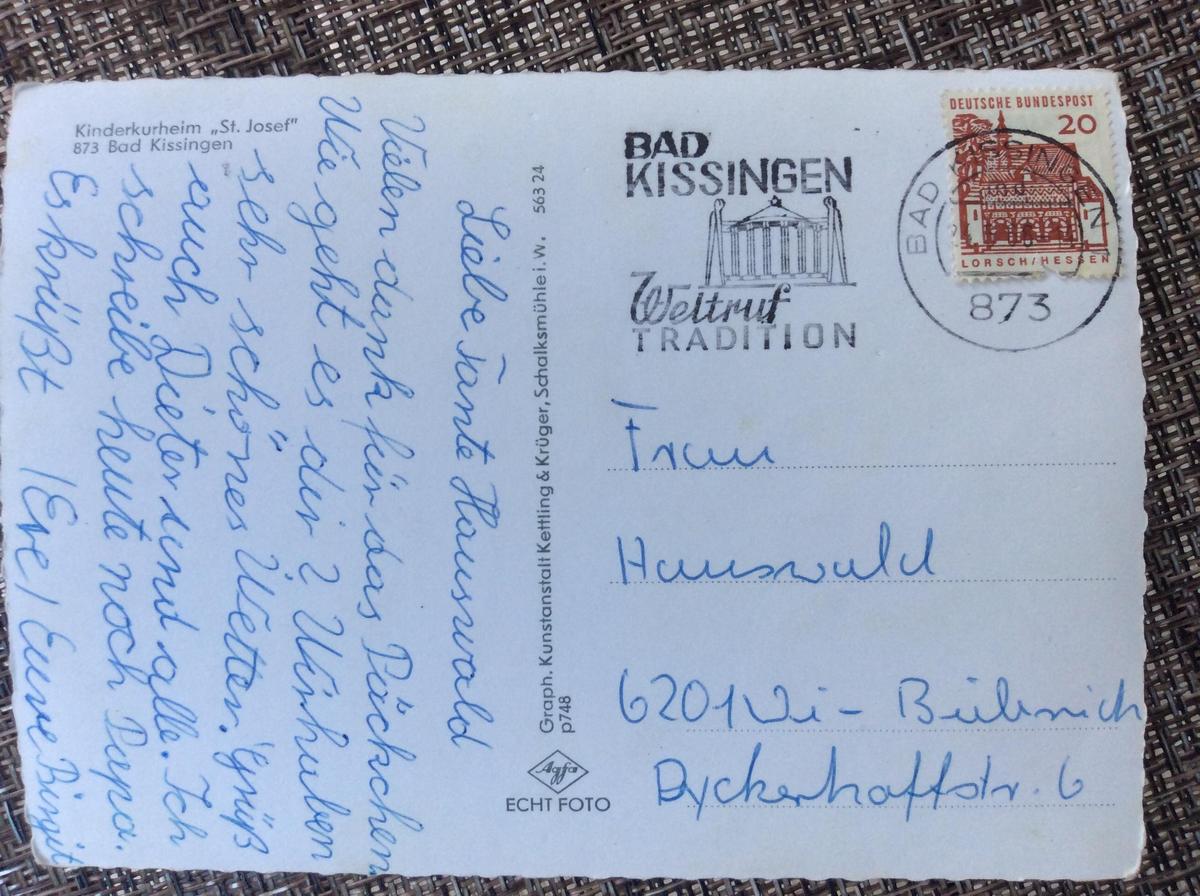 Kinderkurheim „St. Josef"
873 Bad Kissingen
Liebe Tante Hauswald
Vielen dank für das Päckchen
Wie geht es dir? Wir haben
sehr schönes Wetter. Grüß
auch Dieter und alle. Ich
schreibe heute noch Papa.
Es krüßt Eure Birgit
Graph. Kunstanstalt Kettling & Krüger, Schalksmühle i. W. 563 24
p748
Agfa
ECHT FOTO
BAD
KISSINGEN
Weltruf
TRADITION
BAD
873
DEUTSCHE BUNDESPOST
20
LORSCH/HESSEN
Frau
Hauswald
6201 Wi-
Dyckerhoffstr. 6